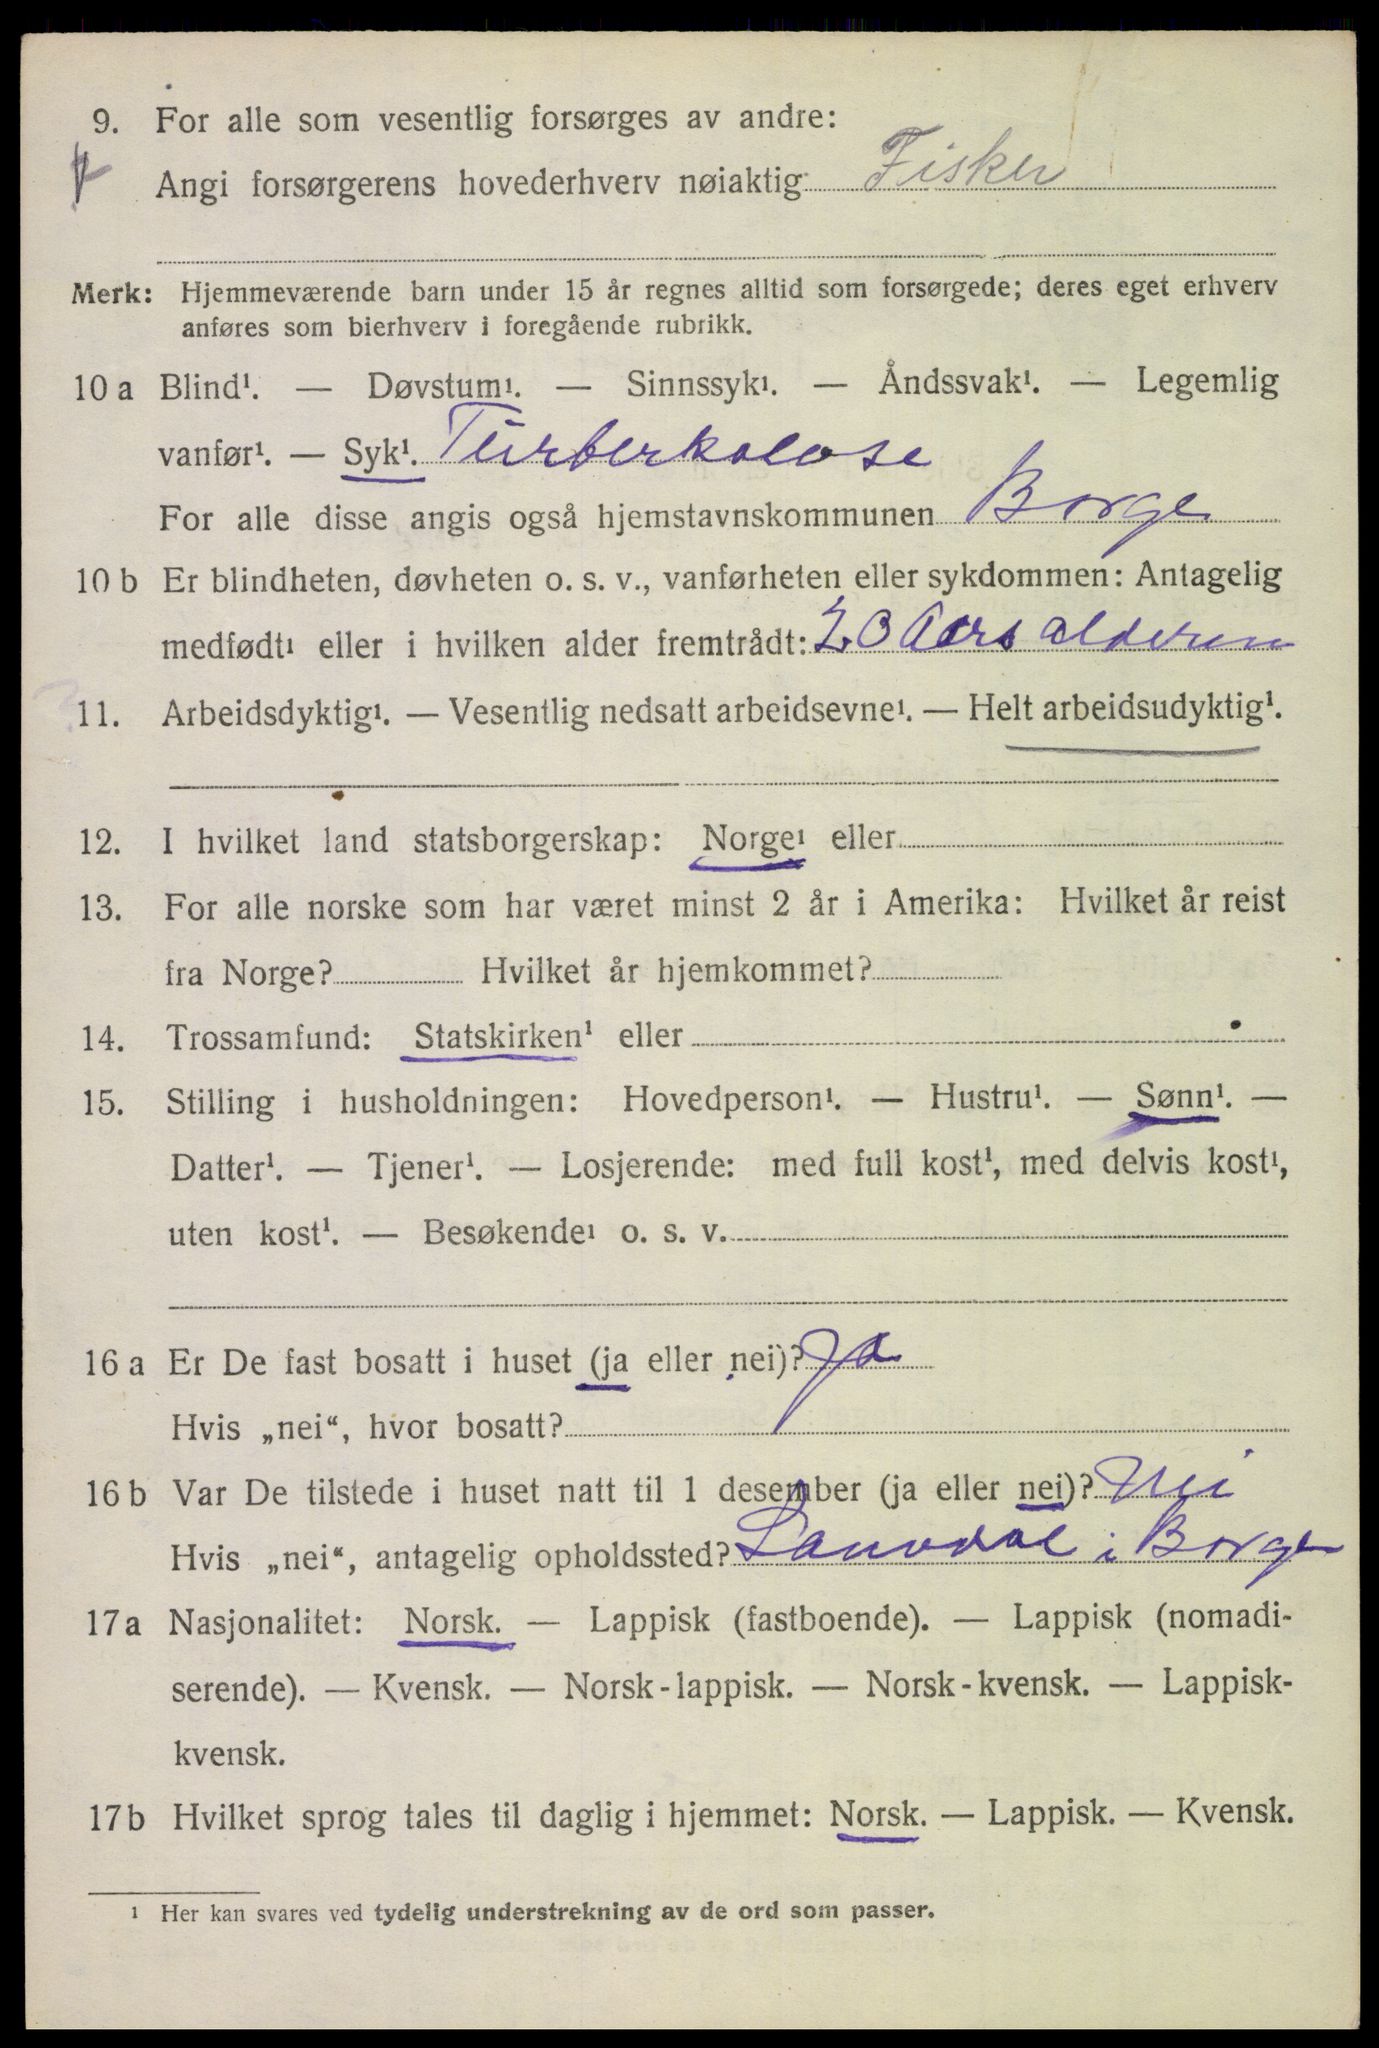 9. For alle som vesentlig forsørges av andre:
Angi forsørgerens hovederhverv nøiaktig Fisker
Merk: Hjemmeværende barn under 15 år regnes alltid som forsørgede; deres eget erhverv
anføres som bierhverv i foregående rubrikk.
10 a Blind¹. — Døvstum¹. — Sinnssyk¹. — Åndssvak¹. — Legemlig
vanfør¹. — Syk¹. Turberkolose
For alle disse angis også hjemstavnskommunen Borge
10 b Er blindheten, døvheten o. s. v., vanførheten eller sykdommen: Antagelig
medfødt¹ eller i hvilken alder fremtrådt: 20 Aars alderen
11. Arbeidsdyktig¹. — Vesentlig nedsatt arbeidsevne¹. — Helt arbeidsudyktig¹.
12. I hvilket land statsborgerskap: Norge¹ eller
13. For alle norske som har været minst 2 år i Amerika: Hvilket år reist
fra Norge? Hvilket år hjemkommet?
14. Trossamfund: Statskirken¹ eller
15. Stilling i husholdningen: Hovedperson¹. — Hustru¹. — Sønn¹. —
Datter¹. — Tjener¹. — Losjerende: med full kost¹, med delvis kost¹,
uten kost¹. — Besøkende¹ o. s. v.
16 a Er De fast bosatt i huset (ja eller nei)? Ja
Hvis „nei“, hvor bosatt?
16 b Var De tilstede i huset natt til 1 desember (ja eller nei)? Nei
Hvis „nei“, antagelig opholdssted? i Borge
17 a Nasjonalitet: Norsk. — Lappisk (fastboende). — Lappisk (nomadi-
serende). — Kvensk. — Norsk-lappisk. — Norsk-kvensk. — Lappisk-
kvensk.
17 b Hvilket sprog tales til daglig i hjemmet: Norsk. — Lappisk. — Kvensk.
¹ Her kan svares ved tydelig understrekning av de ord som passer.